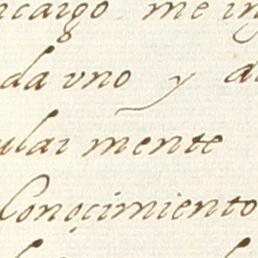 ncargo me in
da vno y a
ular mente
Conoçimiento